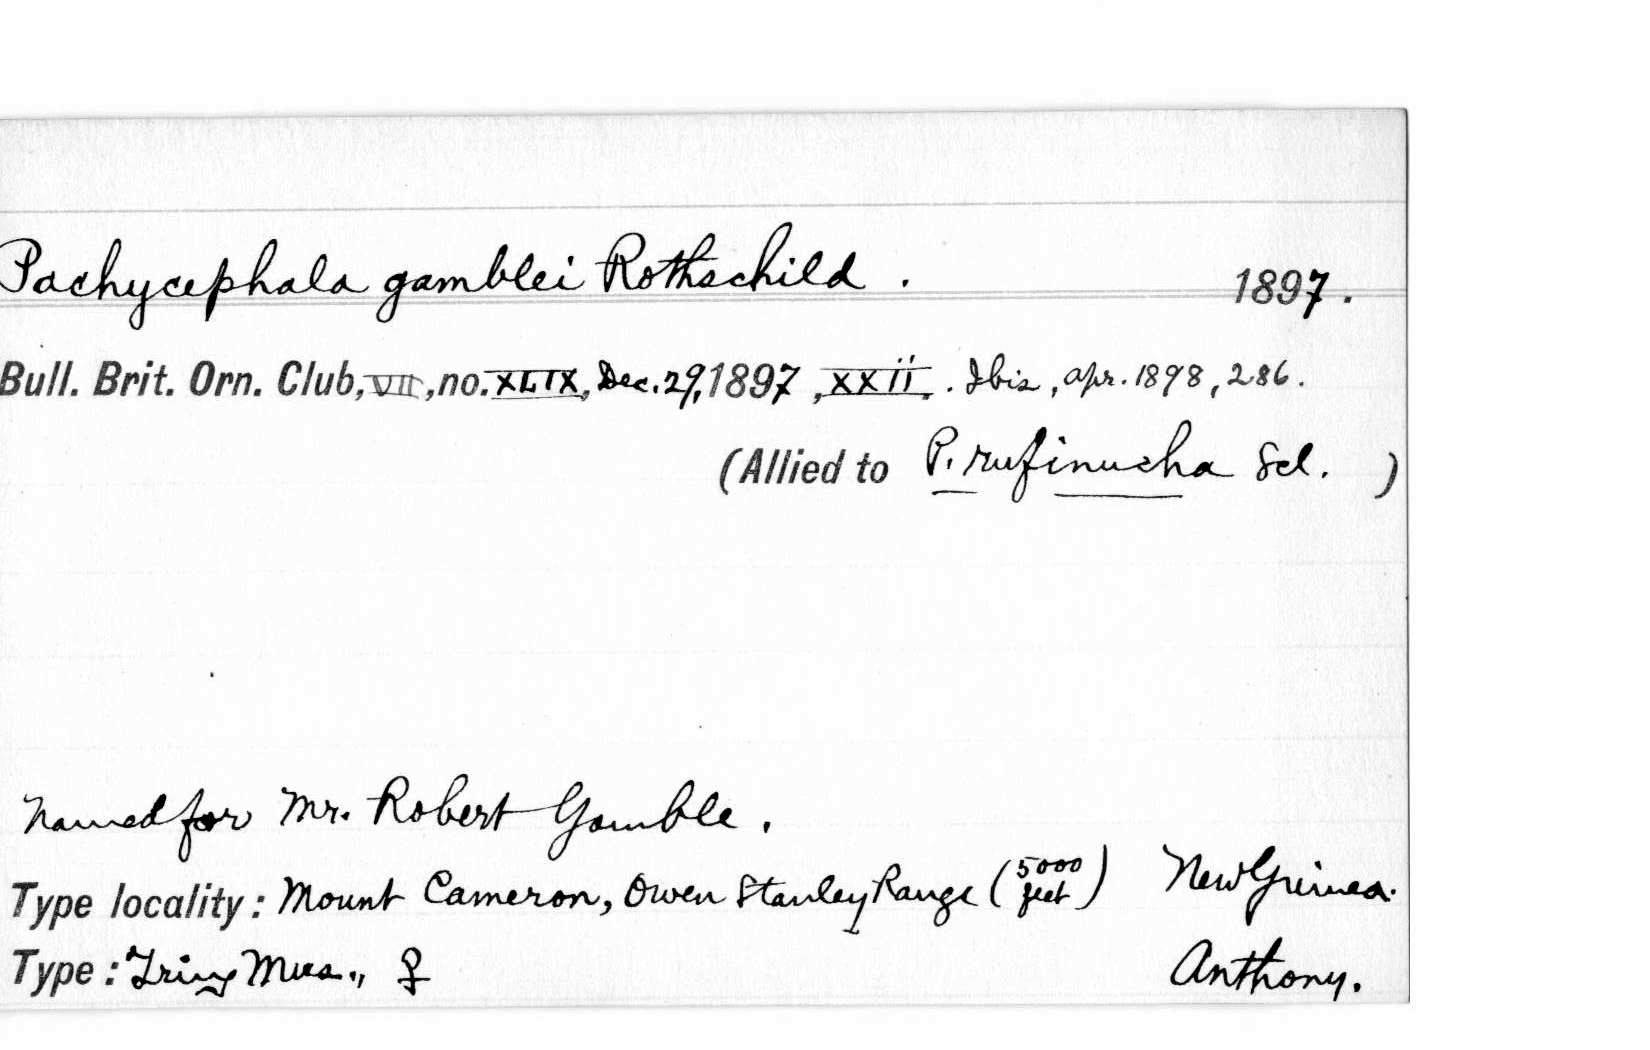 Pachycephala gamblei Rothschild . 1897.
Bull. Brit. Orn. Club, VII, no. XLIX, Dec. 29, 1897, xxii. Ibis, apr. 1898, 286.
(Allied to P. rufinucha Scl. )
Named for Mr. Robert Gamble.
Type locality: Mount Cameron, Owen Stanley Range (5000 feet) New Guinea.
Type: Tring Mus., ♀ Anthony.